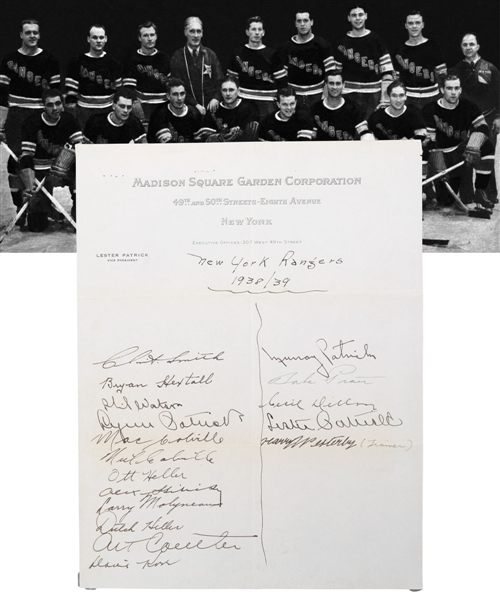 RANGERS RANGERS RANGERS RANGERS RANGERS RANGERS RANGERS
RANGERS RANGERS RANGERS RANGERS RANGERS RANGERS RANGERS RANGERS
MADISON SQUARE GARDEN CORPORATION
49TH AND 50TH STREETS - EIGHTH AVENUE
NEW YORK
EXECUTIVE OFFICES - 307 WEST 49TH STREET
LESTER PATRICK
VICE PRESIDENT
New York Rangers
1938/39
Clint Smith
Bryan Hextall
Phil Watson
Lynn Patrick
Mac Colville
Neil Colville
Ott Heller
Alex Shibicky
Larry Molyneaux
Dutch Hiller
Art Coulter
Dave Kerr
Murray Patrick
Babe Pratt
Cecil Dillon
Lester Patrick
Harry Westerby (Trainer)